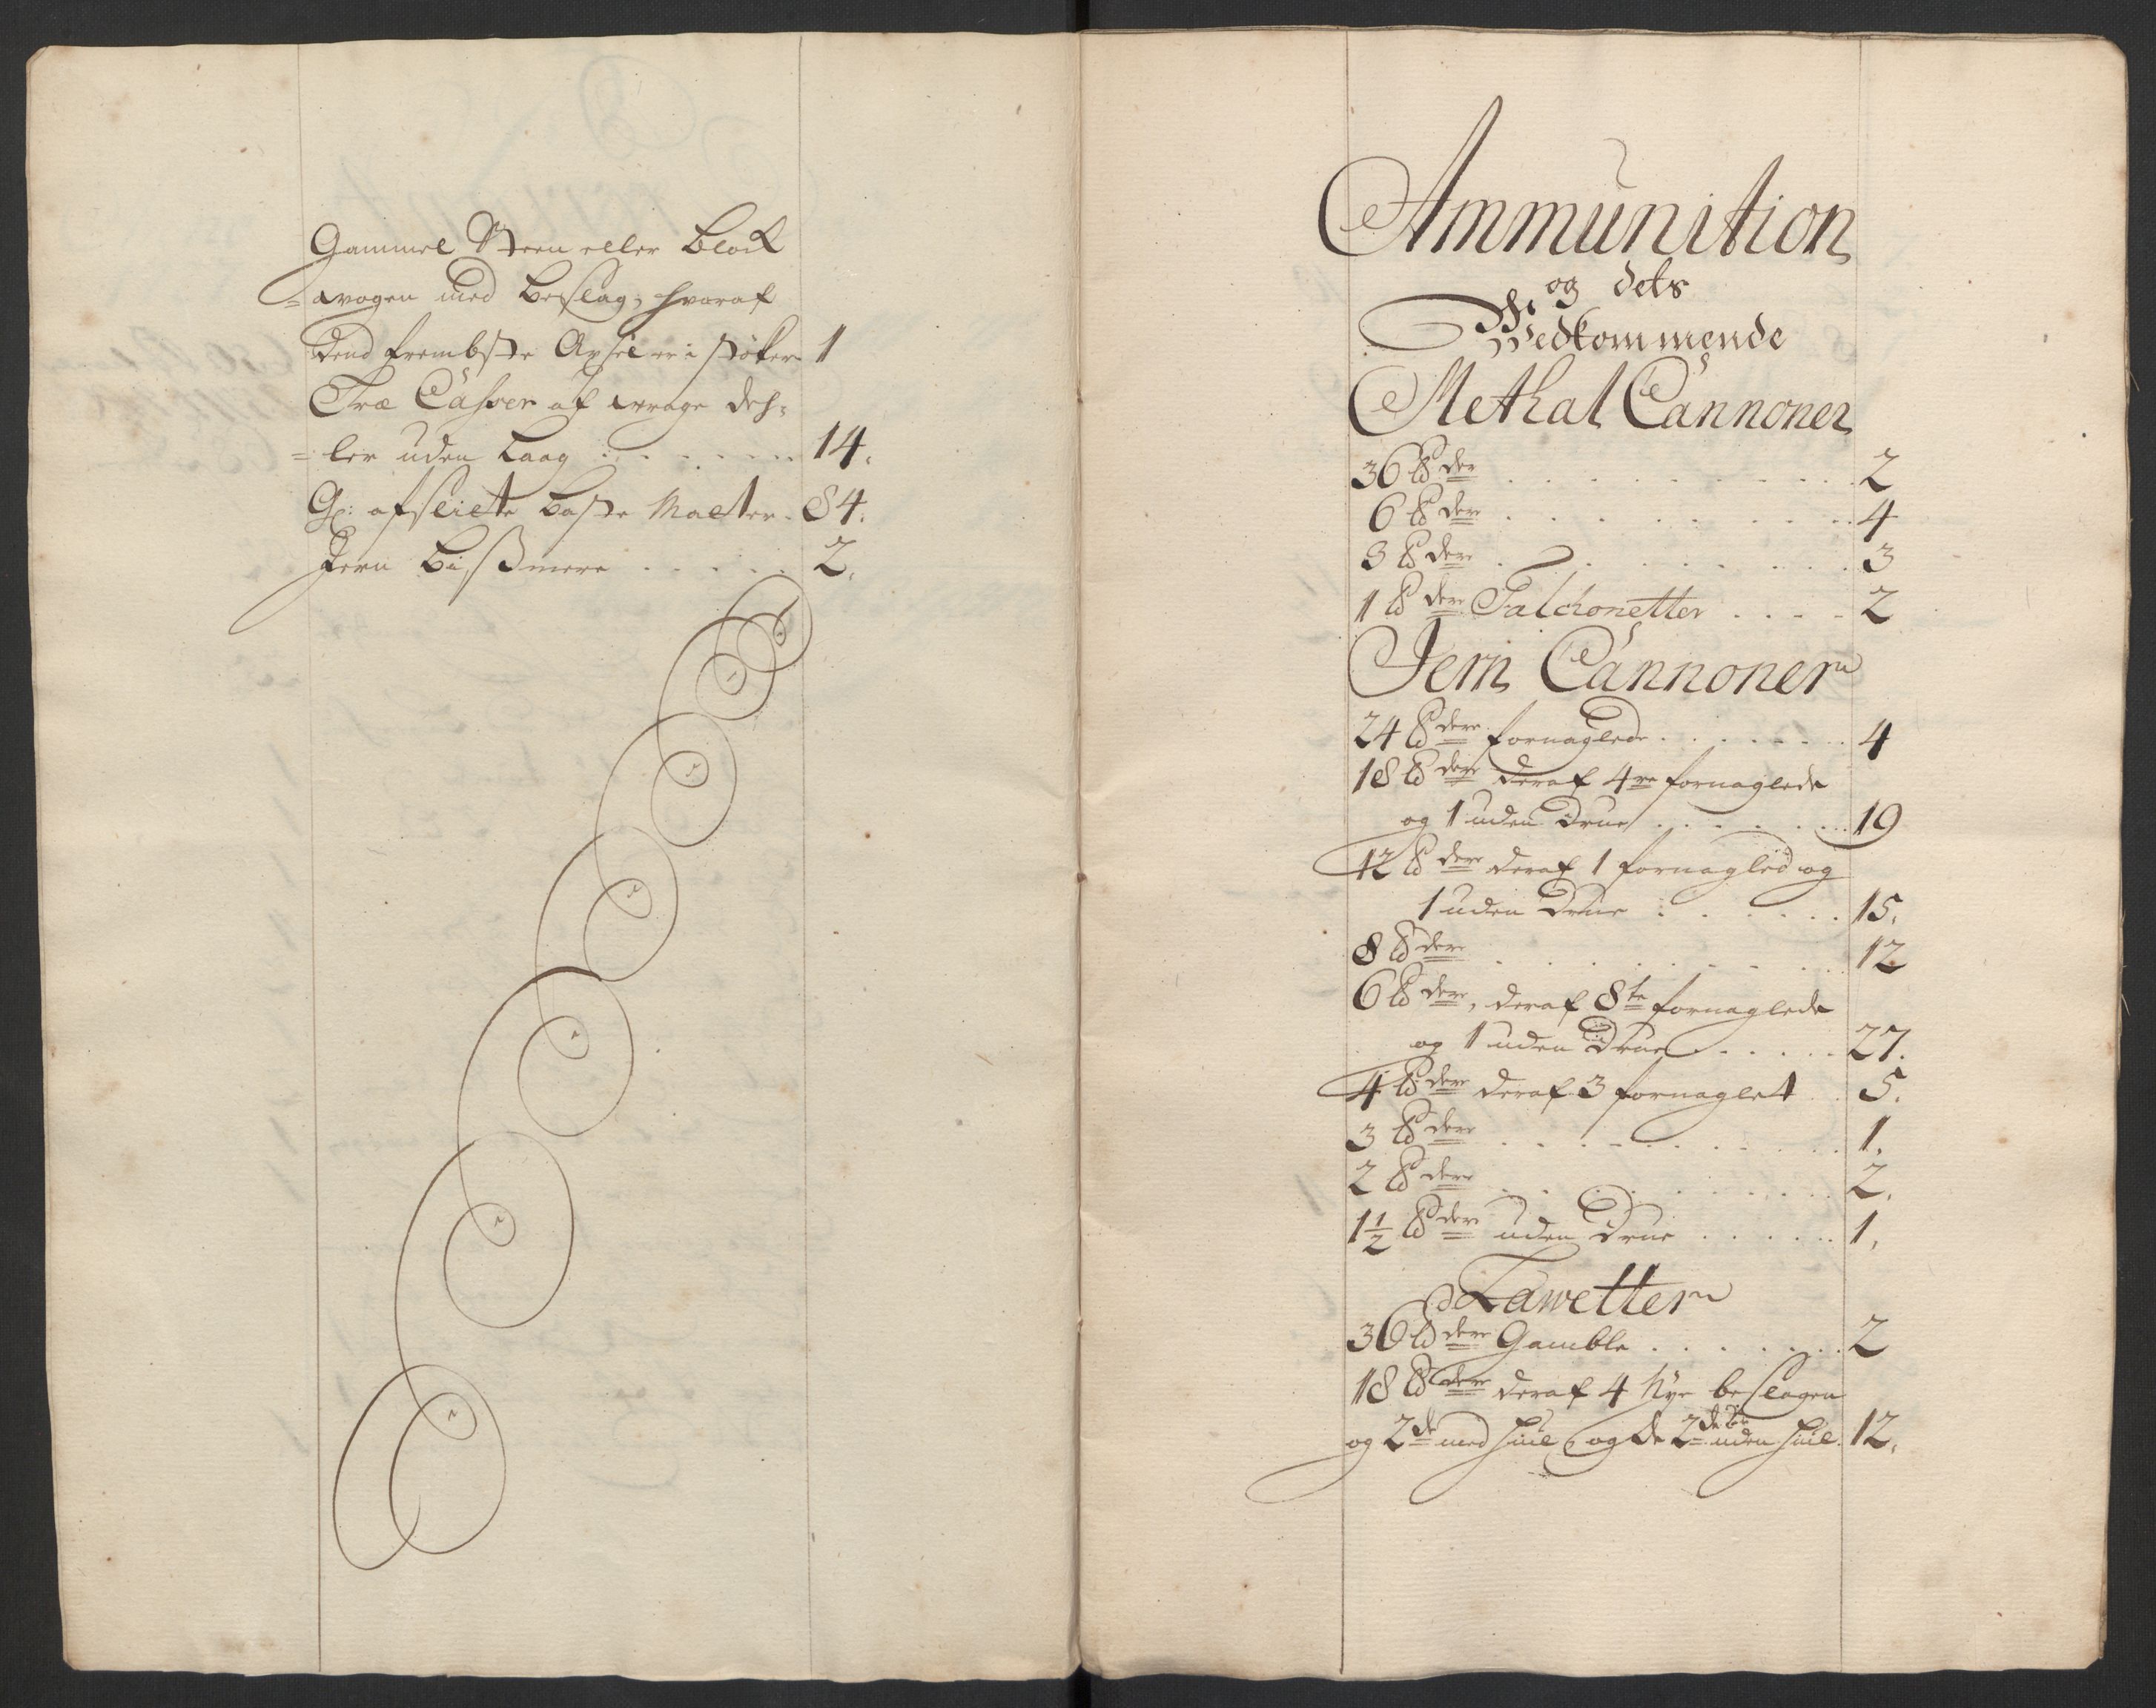 Gammel Steen eller Block
=wogen med beslag, hvoraf
dend frembste Axsel er i støker 1
Træ Casser af wrage deh=
=ler uden Laag . . . . . . 14.
Gl: afsleicte baste Matter . 84.
Jern bißmere . . . . . 2.
Ammunition
og dets
Vedkommende
Methal Cannoner
36 ℔der . . . . . . . . 2
6 ℔der . . . . . . . . 4
3 ℔der . . . . . . . . 3
1 ℔der Falchonetter . . . . 2
Jern Cannoner
24 ℔dere fornaglede . . . . . . . 4
18 ℔der deraf 4re fornaglede
og 1 uden Drue . . . . . . 19
12 ℔dere deraf 1 fornagled og
1 uden Drue . . . . . . 15.
8 ℔der . . . . . . . . 12
6 ℔dere, deraf 8te fornaglede
og 1 uden Drue . . . . . . 27.
4 ℔dere deraf 3 fornaglet . 5.
3 ℔dere . . . . . . . . 1.
2 ℔dere . . . . . . . . 2.
1½ ℔der uden Drue . . . . . . 1.
Lawetter
36 ℔dere Gamble . . . . . . . 2
18 ℔dere deraf 4 Nye beslagen
og 2de med hiul og de 2de uden hiul. 12.